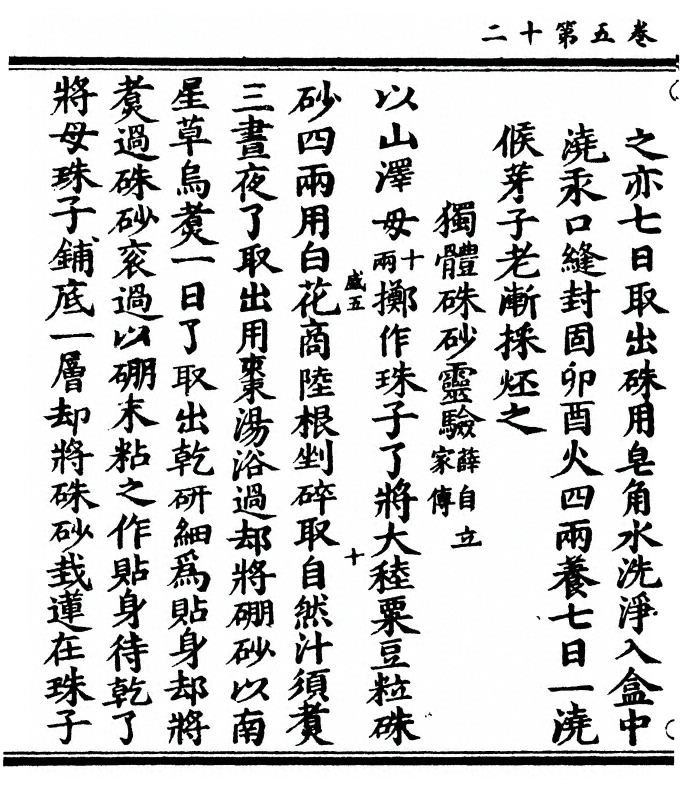 卷五第十二
之亦七日取出硃用皂角水洗淨入盒中
澆汞口縫封固卯酉火四兩養七日一澆
候芽子老漸採炢之
獨體硃砂靈驗薛自立家傳
以山澤母十兩擲作珠子了將大稑粟豆粒硃
砂四兩用白花商陸根剉碎取自然汁須煑
三晝夜了取出用棗湯浴過却將硼砂以南
星草烏煑一日了取出乾研細爲貼身却將
煑過硃砂衮過以硼末粘之作貼身待乾了
將母珠子鋪底一層却將硃砂㘽蓮在珠子
盛五
十